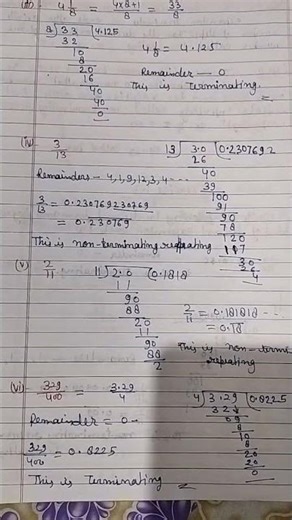 (iii) 4 1/8 = 4×8+1/8 = 33/8
8 ) 33 ( 4.125
32
10
8
20
16
40
40
0
4 1/8 = 4.125
Remainder — 0
This is terminating
(iv) 3/13
13 ) 3.0 ( 0.2307692
26
40
39
100
91
90
78
120
117
30
26
4
Remainders - 4,1,9,12,3,4 - - -
3/13 = 0.230769230769
= 0.230769
This is non-terminating repeating
(v) 2/11
11 ) 2.0 ( 0.1818
11
90
88
20
11
90
88
2
2/11 = 0.181818 - - -
= 0.18
This is non-termi
repeating
(vi) 329/400 = 3.29/4
4 ) 3.29 ( 0.8225
32
09
8
10
8
20
20
0
Remainder = 0
329/400 = 0.8225
This is Terminating